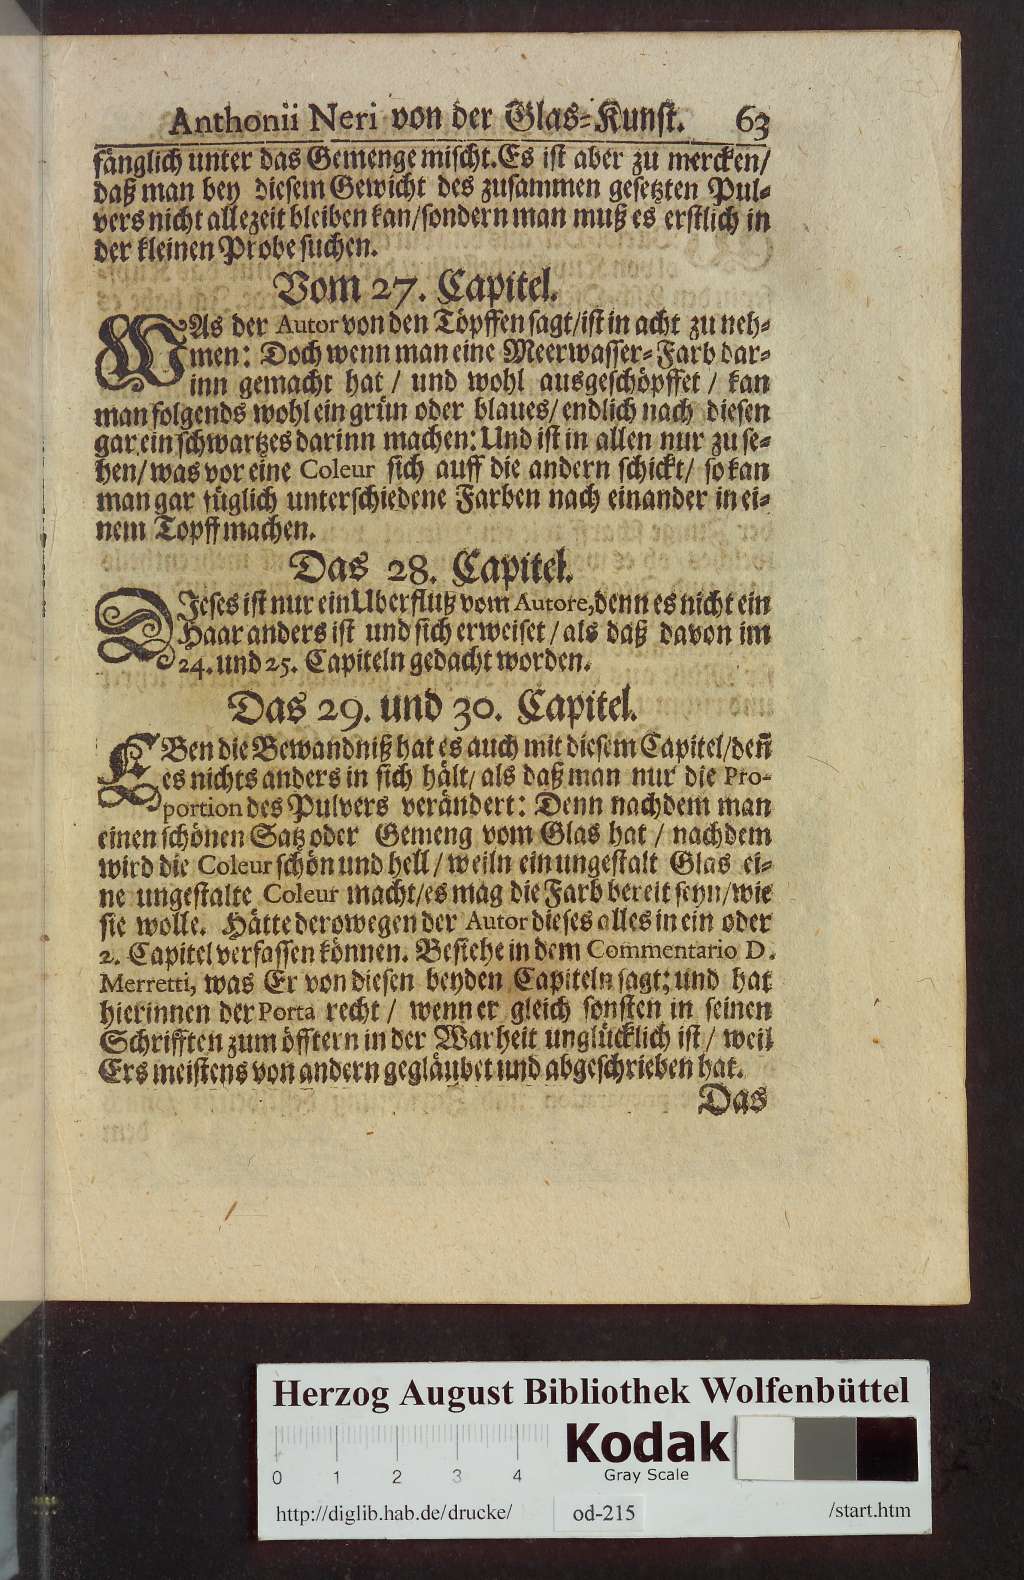 Anthonii Neri von der Glas-Kunst. 63
fänglich unter das Gemenge mischt. Es ist aber zu mercken/
daß man bey diesem Gewicht des zusammen gesetzten Pul-
vers nicht allezeit bleiben kan/sondern man muß es erstlich in
der kleinen Probe suchen.
Vom 27. Capitel.
WAs der Autor von den Töpffen sagt/ist in acht zu neh-
men: Doch wenn man eine Meerwasser-Farb dar-
inn gemacht hat / und wohl ausgeschöpffet / kan
man folgends wohl ein grün oder blaues/ endlich nach diesen
gar ein schwartzes darinn machen: Und ist in allen nur zu se-
hen/ was vor eine Coleur sich auff die andern schickt/ so kan
man gar füglich unterschiedene Farben nach einander in ei-
nem Topff machen.
Das 28. Capitel.
DIeses ist nur ein Uberfluß vom Autore, denn es nicht ein
Haar anders ist und sich erweiset / als daß davon im
24. und 25. Capiteln gedacht worden.
Das 29. und 30. Capitel.
EBen die Bewandniß hat es auch mit diesem Capitel/ den̄
es nichts anders in sich hält/ als daß man nur die Pro-
portion des Pulvers verändert: Denn nachdem man
einen schönen Satz oder Gemeng vom Glas hat / nachdem
wird die Coleur schön und hell / weiln ein ungestalt Glas ei-
ne ungestalte Coleur macht/es mag die Farb bereit seyn/wie
sie wolle. Hätte derowegen der Autor dieses alles in ein oder
2. Capitel verfassen können. Besiehe in dem Commentario D.
Merretti, was Er von diesen beyden Capiteln sagt; und hat
hierinnen der Porta recht / wenn er gleich sonsten in seinen
Schrifften zum öfftern in der Warheit unglücklich ist / weil
Ers meistens von andern gegläubet und abgeschrieben hat.
Das
Herzog August Bibliothek Wolfenbüttel
Kodak
Gray Scale
0 1 2 3 4
http://diglib.hab.de/drucke/ od-215 /start.htm